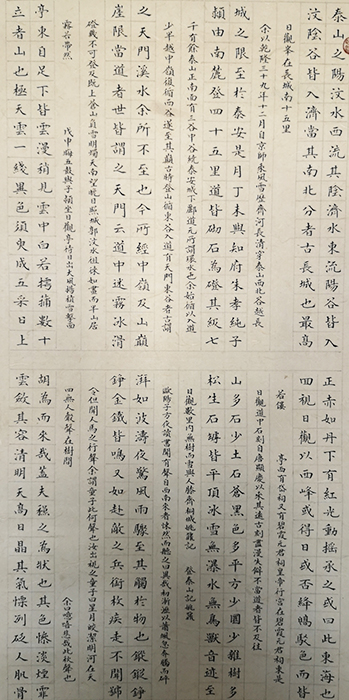 泰山之陽汶水西流其陰濟水東流陽谷皆入
汶陰谷皆入濟當其南北分者古長城也最高
日觀峯在長城南十五里
余以乾隆三十九年十二月自京師乘風雪歷齊河長清穿泰山西北谷越長
城之限至於泰安是月丁未與知府朱孝純子
潁由南麓登四十五里道皆砌石為磴其級七
千有餘泰山正南面有三谷中谷繞泰安城下酈道元所謂環水也余始循以入道
少半越中嶺復循西谷遂至其巔古時登山循東谷入道有天門東谷者古謂
之天門溪水余所不至也今所經中嶺及山巔
崖限當道者世皆謂之天門云道中迷霧冰滑
磴幾不可登及既上蒼山負雪明燭天南望晚日照城郭汶水徂徠如畫而半山居
霧若帶然
戊申晦五鼓與子潁坐日觀亭待日出大風揚積雪擊面
亭東自足下皆雲漫稍見雲中白若樗蒱數十
立者山也極天雲一綫異色須臾成五采日上
正赤如丹下有紅光動搖承之或曰此東海也
回視日觀以西峰或得日或否絳皓駁色而皆
若僂
亭西有岱祠又有碧霞元君祠皇帝行宮在碧霞元君祠東是
日觀道中石刻自唐顯慶以來其遠古刻盡漫失僻不當道者皆不及往
山多石少土石蒼黑色多平方少圜少雜樹多
松生石罅皆平頂冰雪無瀑水無鳥獸音迹至
日觀數里內無樹而雪與人膝齊桐城姚鼐記 登泰山記姚鼐
歐陽子方夜讀書聞有聲自西南來者悚然而聽之曰異哉初淅瀝以蕭颯忽奔騰而砰
湃如波濤夜驚風雨驟至其觸於物也鏦鏦錚
錚金鐵皆鳴又如赴敵之兵銜枚疾走不聞號
令但聞人馬之行聲余謂童子此何聲也汝出視之童子曰星月皎潔明河在天
四無人聲聲在樹間
余曰噫嘻悲哉此秋聲也
胡為而來哉蓋夫秋之為狀也其色慘淡煙霏
雲斂其容清明天高日晶其氣慄冽砭人肌骨